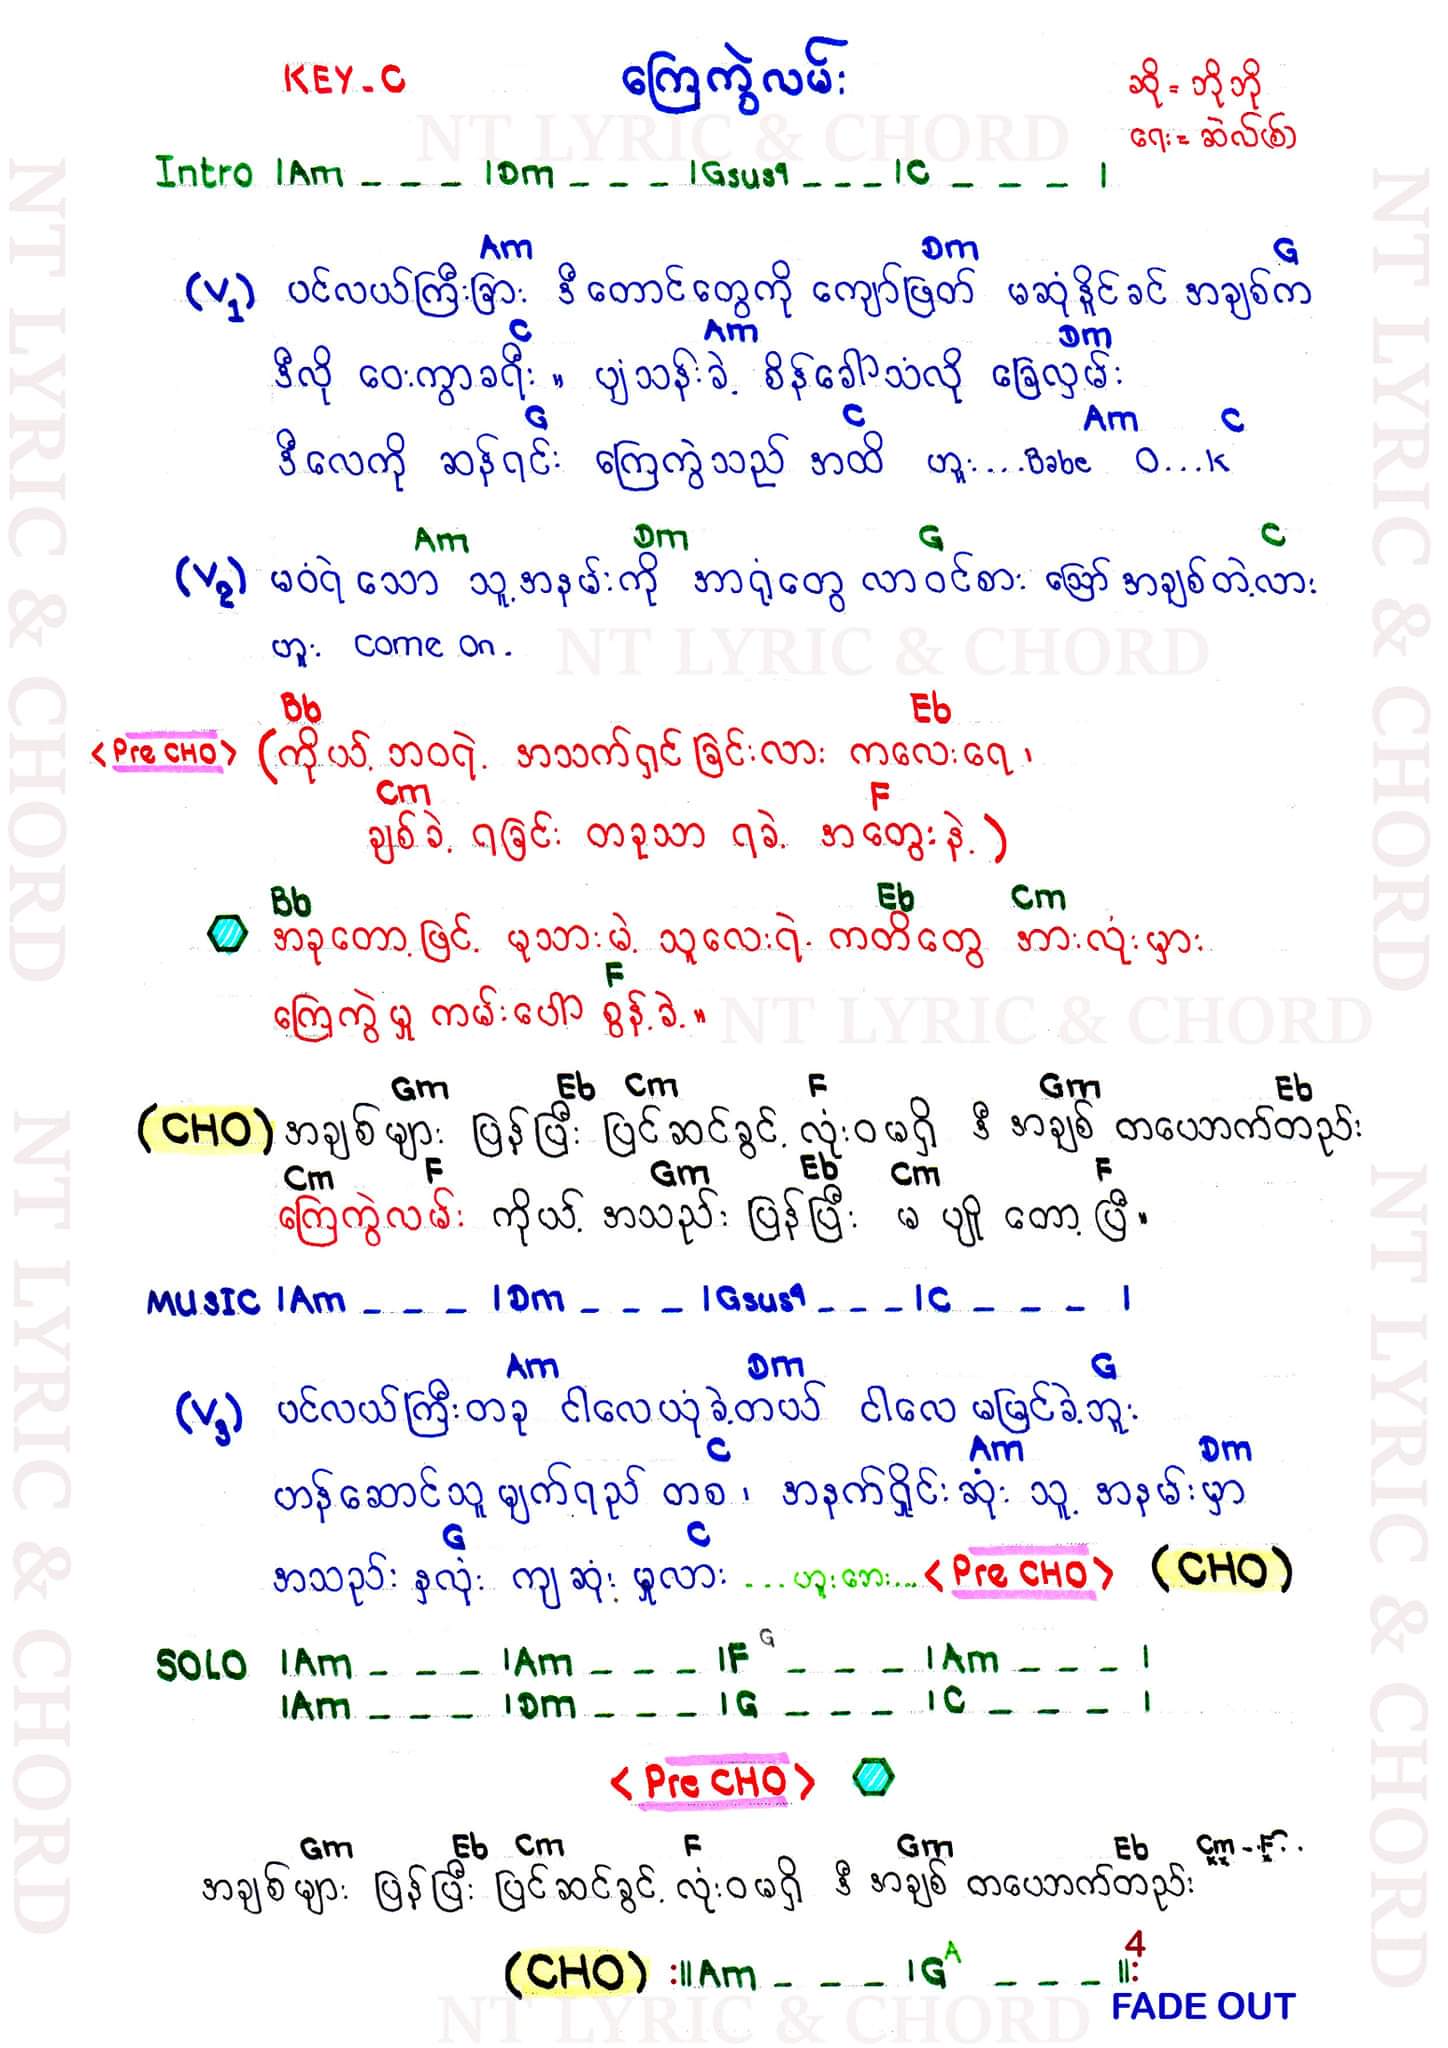 KEY - C ကြေကွဲလမ်း ဆို = ဘိုဘို
ရေး = ဆဲလ်(စ်)
NT LYRIC & CHORD
Intro |Am _ _ _ |Dm _ _ _ |Gsus4 _ _ _ |C _ _ _ |
Am Dm G
(V1) ပင်လယ်ကြီးခြား ဒီတောင်တွေကို ကျော်ဖြတ် မဆုံနိုင်ခင် အချစ်က
C Am Dm
ဒီလို ဝေးကွာခရီး ။ ပျံသန်းခဲ့ စိန်ခေါ်သံလို ခြေလှမ်း
G C Am C
ဒီလေကို ဆန်ရင်း ကြေကွဲသည် အထိ ဟူး....Babe O...K
Am Dm G C
(V2) မဝံ့ရဲသော သူ့အနမ်းကို အာရုံတွေ လာဝင်စား ဪ အချစ်တဲ့လား
ဟူး come on.
NT LYRIC & CHORD
Bb Eb
<Pre CHO> (ကိုယ့် ဘဝရဲ့ အသက်ရှင်ခြင်းလား ကလေးရေ ၊
Cm F
ချစ်ခဲ့ ရခြင်း တခုသာ ရခဲ့ အတွေးနဲ့ )
Bb Eb Cm
အခုတော့ဖြင့် မုသားမဲ့ သူလေးရဲ့ ကတိတွေ အားလုံးမှား
F
ကြေကွဲမှု ကမ်းပေါ် စွန့်ခဲ့ ။
NT LYRIC & CHORD
Gm Eb Cm F Gm Eb
(CHO) အချစ်များ ပြန်ပြီး ပြင်ဆင်ခွင့် လုံးဝမရှိ ဒီ အချစ် တယောက်တည်း
Cm F Gm Eb Cm F
ကြေကွဲလမ်း ကိုယ့် အသည်း ပြန်ပြီး မ ပျို တော့ ပြီ ။
MUSIC |Am _ _ _ |Dm _ _ _ |Gsus4 _ _ _ |C _ _ _ |
Am Dm G
(V3) ပင်လယ်ကြီးတခု ငါလေယုံခဲ့တယ် ငါလေ မမြင်ခဲ့ဘူး
C Am Dm
ဟန်ဆောင်သူမျက်ရည် တစ ၊ အနက်ရှိုင်းဆုံး သူ့ အနမ်းမှာ
G C
အသည်း နှလုံး ကျဆုံး မှုလား ...ဟူးဘေး... <Pre CHO> (CHO)
SOLO |Am _ _ _ |Am _ _ _ |F G _ _ _ |Am _ _ _ |
|Am _ _ _ |Dm _ _ _ |G _ _ _ |C _ _ _ |
<Pre CHO>
Gm Eb Cm F Gm Eb Cm - F..
အချစ်များ ပြန်ပြီး ပြင်ဆင်ခွင့် လုံးဝမရှိ ဒီ အချစ် တယောက်တည်း
(CHO) :||Am _ _ _ |G A _ _ _ ||: 4
FADE OUT
NT LYRIC & CHORD
NT LYRIC & CHORD
NT LYRIC & CHORD
NT LYRIC & CHORD
NT LYRIC & CHORD